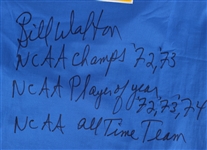 Bill Walton
NCAA Champs '72,'73
NCAA Player of year
'72,'73,'74
NCAA All Time Team